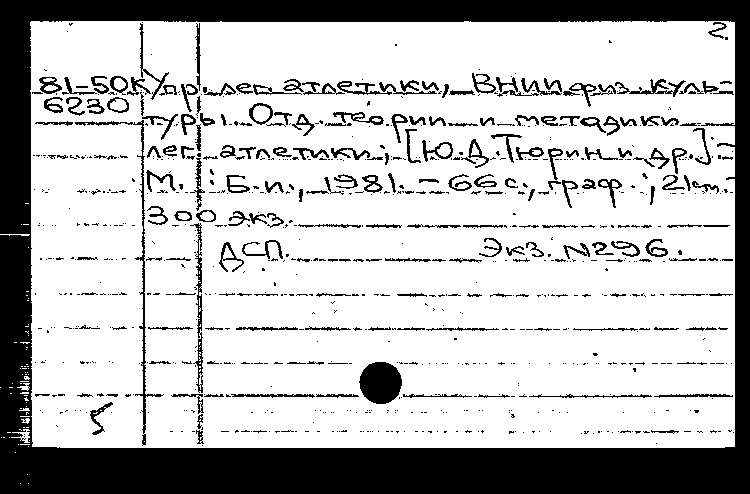 2.
81-50к Упр. лег. атлетики, ВНИИ физ. куль-
6230 туры. Отд. теории и методики
лег. атлетики; [Ю.Д. Тюрин и др.]. -
М. : Б.и., 1981. - 66 с., граф. ; 21 см. -
300 экз.
ДСП. Экз. N296.
5